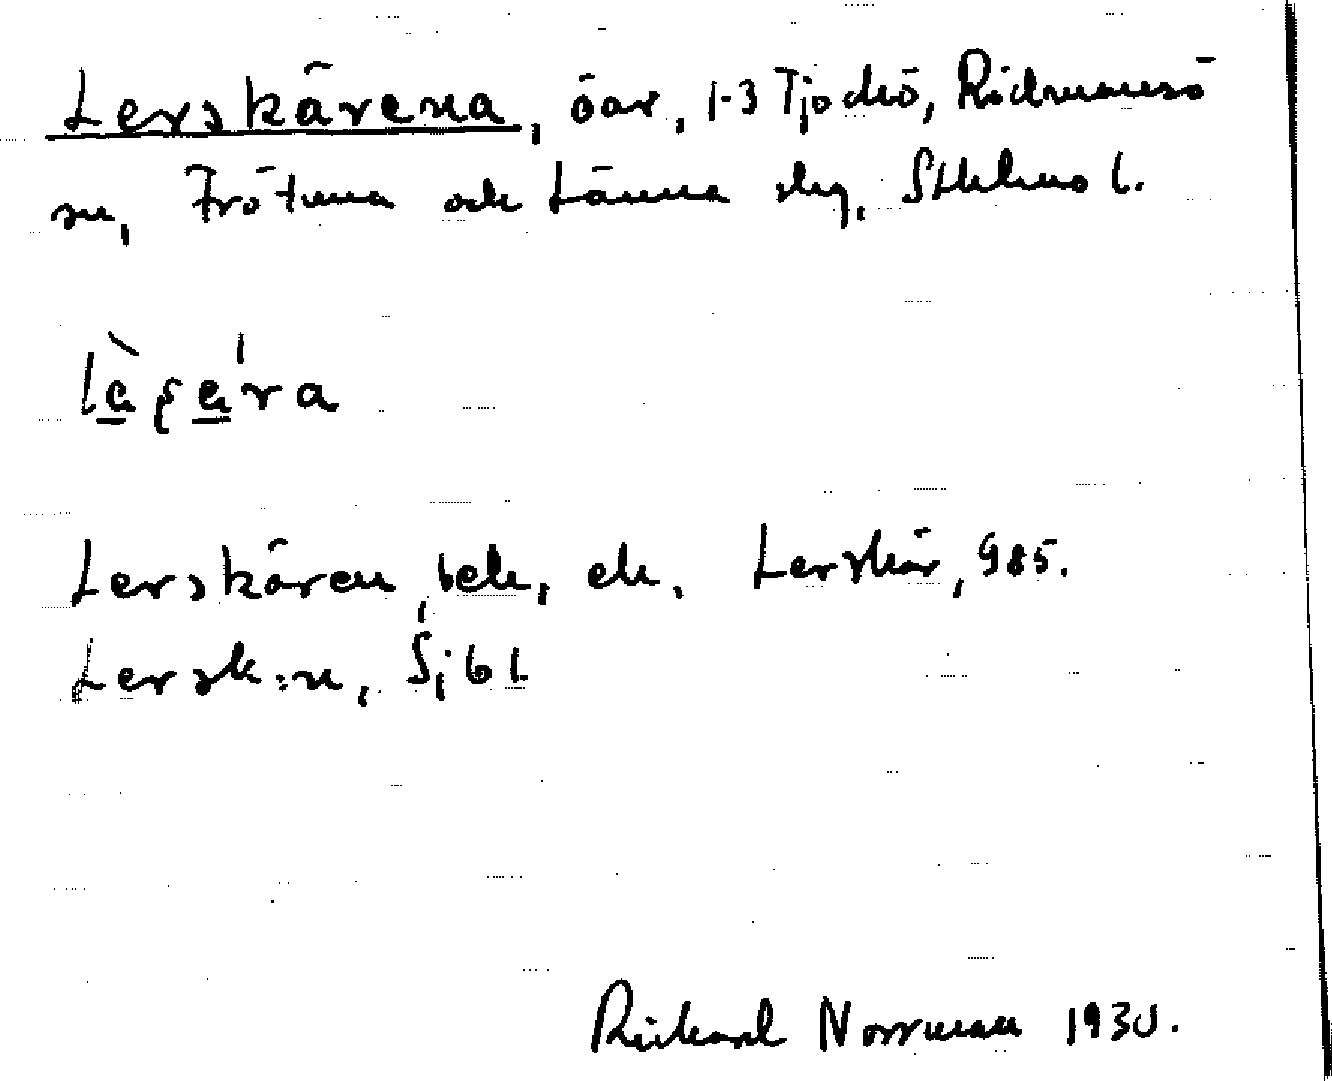 Lerskärena, öar, 1-3 Tjockö, Rådmansö
sn, Frötuna och Länna skg, Sthlms l.
Lerskären, bek, ek. Lerskär, 985.
Lersk:n, S, 61
Rickard Norrman 1930.